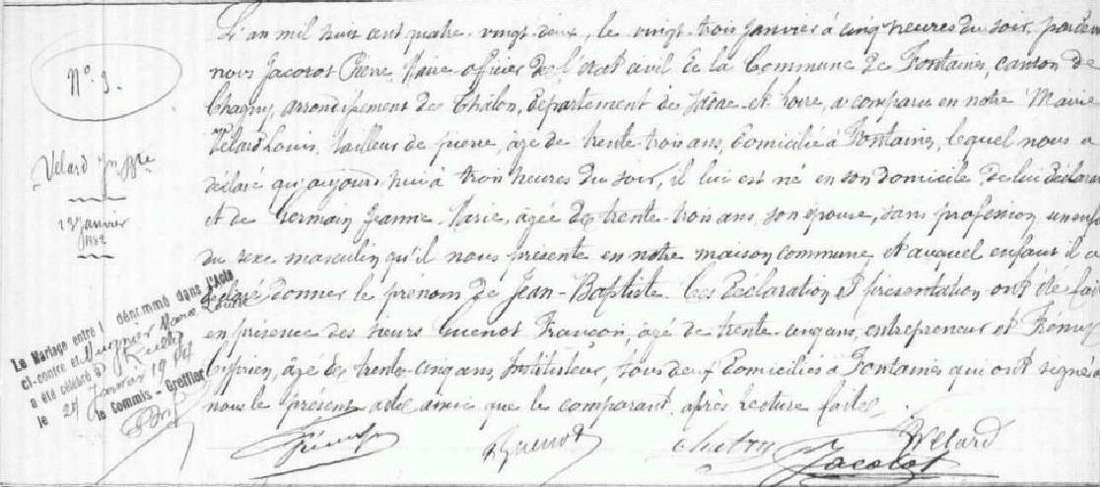 N° 9.
Velard Jn Bte
23 janvier
1882
L'an mil huit cent quatre-vingt-deux, le vingt-trois janvier à cinq heures du soir, par devant
nous Jacotot Pierre Maire officier de l'état civil de la Commune de Fontaines, canton de
Chagny, arrondissement de Châlon, département de Saône-et-Loire, a comparu en notre Mairie
Velard Louis, tailleur de pierre, âgé de trente-trois ans, domicilié à Fontaines, lequel nous a
déclaré qu'aujourd'hui à trois heures du soir, il lui est né en son domicile de lui déclarant
et de Germain Jeanne-Marie, âgée de trente-trois ans, son épouse, sans profession, un enfant
du sexe masculin qu'il nous présente en notre maison commune et auquel enfant il a
déclaré donner le prénom de Jean-Baptiste. Ces déclaration et présentation ont été faites
en présence des sieurs Guenot François, âgé de trente-cinq ans, entrepreneur et
âgé de trente-cinq ans, Instituteur, tous deux domiciliés à Fontaines qui ont signé avec
nous le présent acte ainsi que le comparant, après lecture faite.
Le Mariage entre l dénommé dans l'Acte
ci-contre et Meunier Marie Louise
a été célébré à Rully
le 24 janvier 19
le Commis-Greffier
Guenot
Velard
Jacotot